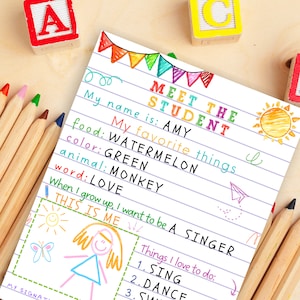 A
C
MEET THE
STUDENT
My name is: AMY
My favorite things
food: WATERMELON
color: GREEN
animal: MONKEY
word: LOVE
When I grow up, I want to be A SINGER
THIS IS ME
Things I love to do:
1. SING
2. DANCE
3.
MY